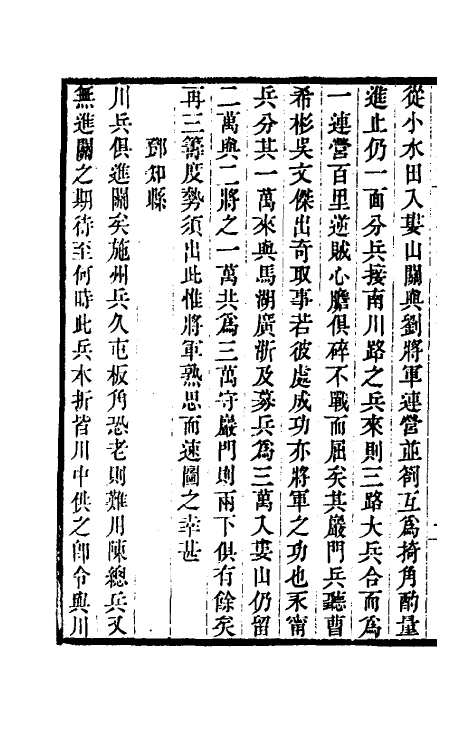 從小水田入婁山關與劉將軍連營並劄互爲掎角酌量
進止仍一面分兵接南川路之兵來則三路大兵合而爲
一連營百里逆賊心膽俱碎不戰而屈矣其嚴門兵聽曹
希彬吳文傑出奇取事若彼處成功亦將軍之功也永甯
兵分其一萬來與馬湖廣浙及募兵爲三萬入婁山仍留
二萬與二將之一萬共爲三萬守嚴門則兩下俱有餘矣
再三籌度勢須出此惟將軍熟思而速圖之幸甚
鄧知縣
川兵俱進關矣施州兵久屯板角恐老則難用陳總兵又
無進關之期待至何時此兵本折皆川中供之卽令與川